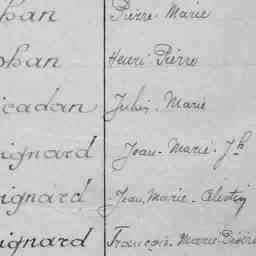 han Pierre Marie
phan Henri Pierre
icadan Jules Marie
ignard Jean-Marie-Jh
ignard Jean, Marie-Célestin
ignard François, Marie-Pierre